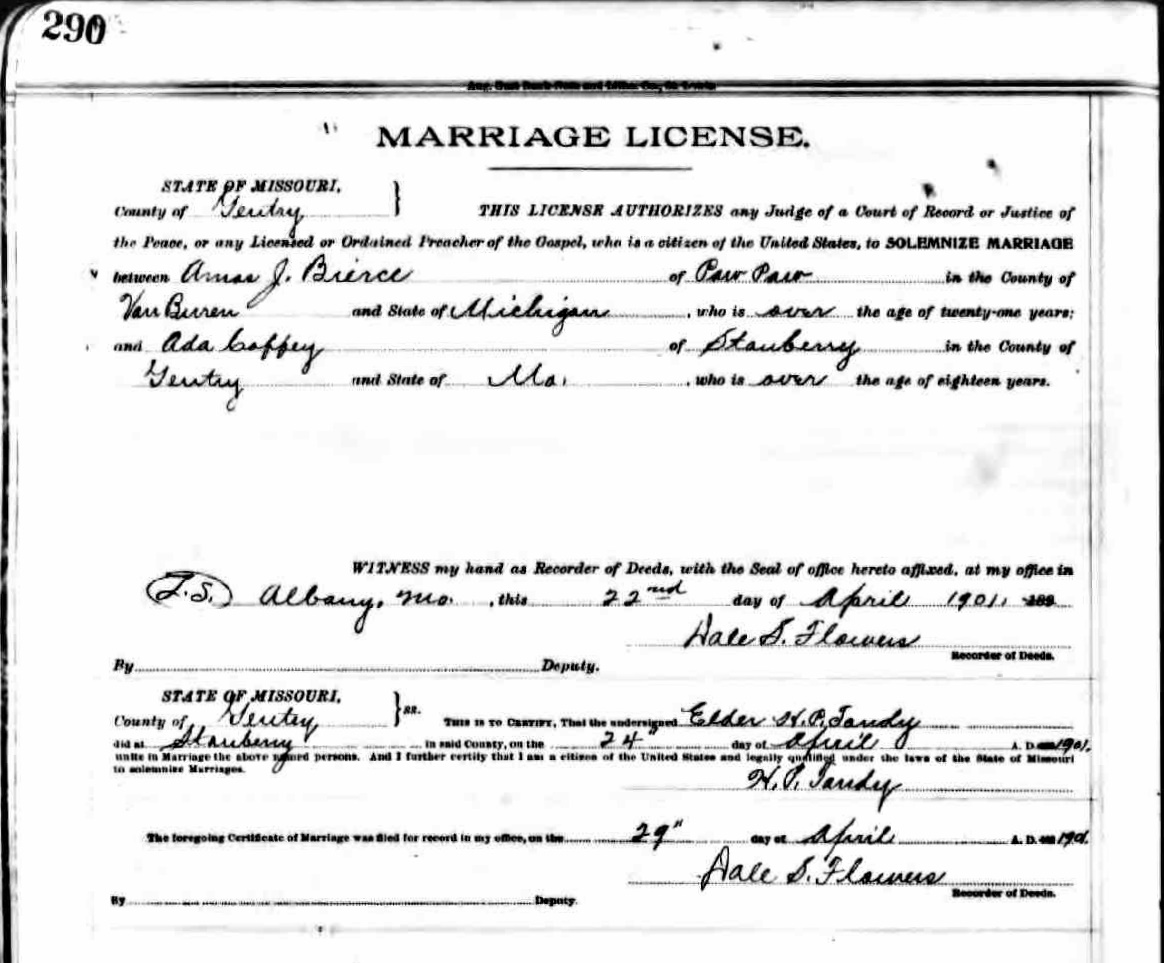 290
MARRIAGE LICENSE.
STATE OF MISSOURI,
County of Gentry } THIS LICENSE AUTHORIZES any Judge of a Court of Record or Justice of
the Peace, or any Licensed or Ordained Preacher of the Gospel, who is a citizen of the United States, to SOLEMNIZE MARRIAGE
between Amos J. Bierce of Paw Paw in the County of
Van Buren and State of Michigan, who is over the age of twenty-one years;
and Ada Coffey of Stanberry in the County of
Gentry and State of Mo., who is over the age of eighteen years.
WITNESS my hand as Recorder of Deeds, with the Seal of office hereto affixed, at my office in
Albany, Mo., this 22nd day of April 1901, 189
Dale S. Flowers
Recorder of Deeds.
By Deputy.
STATE OF MISSOURI,
County of Gentry } ss. THIS IS TO CERTIFY, That the undersigned Elder H. P. Tandy
did at Stanberry in said County, on the 24" day of April A. D. 1901,
unite in Marriage the above named persons. And I further certify that I am a citizen of the United States and legally qualified under the laws of the State of Missouri
to solemnize Marriages.
H. P. Tandy
The foregoing Certificate of Marriage was filed for record in my office, on the 29" day of April A. D. 1901.
Dale S. Flowers
Recorder of Deeds.
By Deputy.